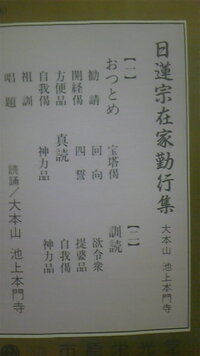 日蓮宗在家勤行集 大本山 池上本門寺
【一】おつとめ
勧請 宝塔偈
開経偈 回向
方便品 四誓
自我偈 真読
祖訓 神力品
唱題
【二】訓読
欲令衆
提婆品
自我偈
神力品
読誦／大本山 池上本門寺